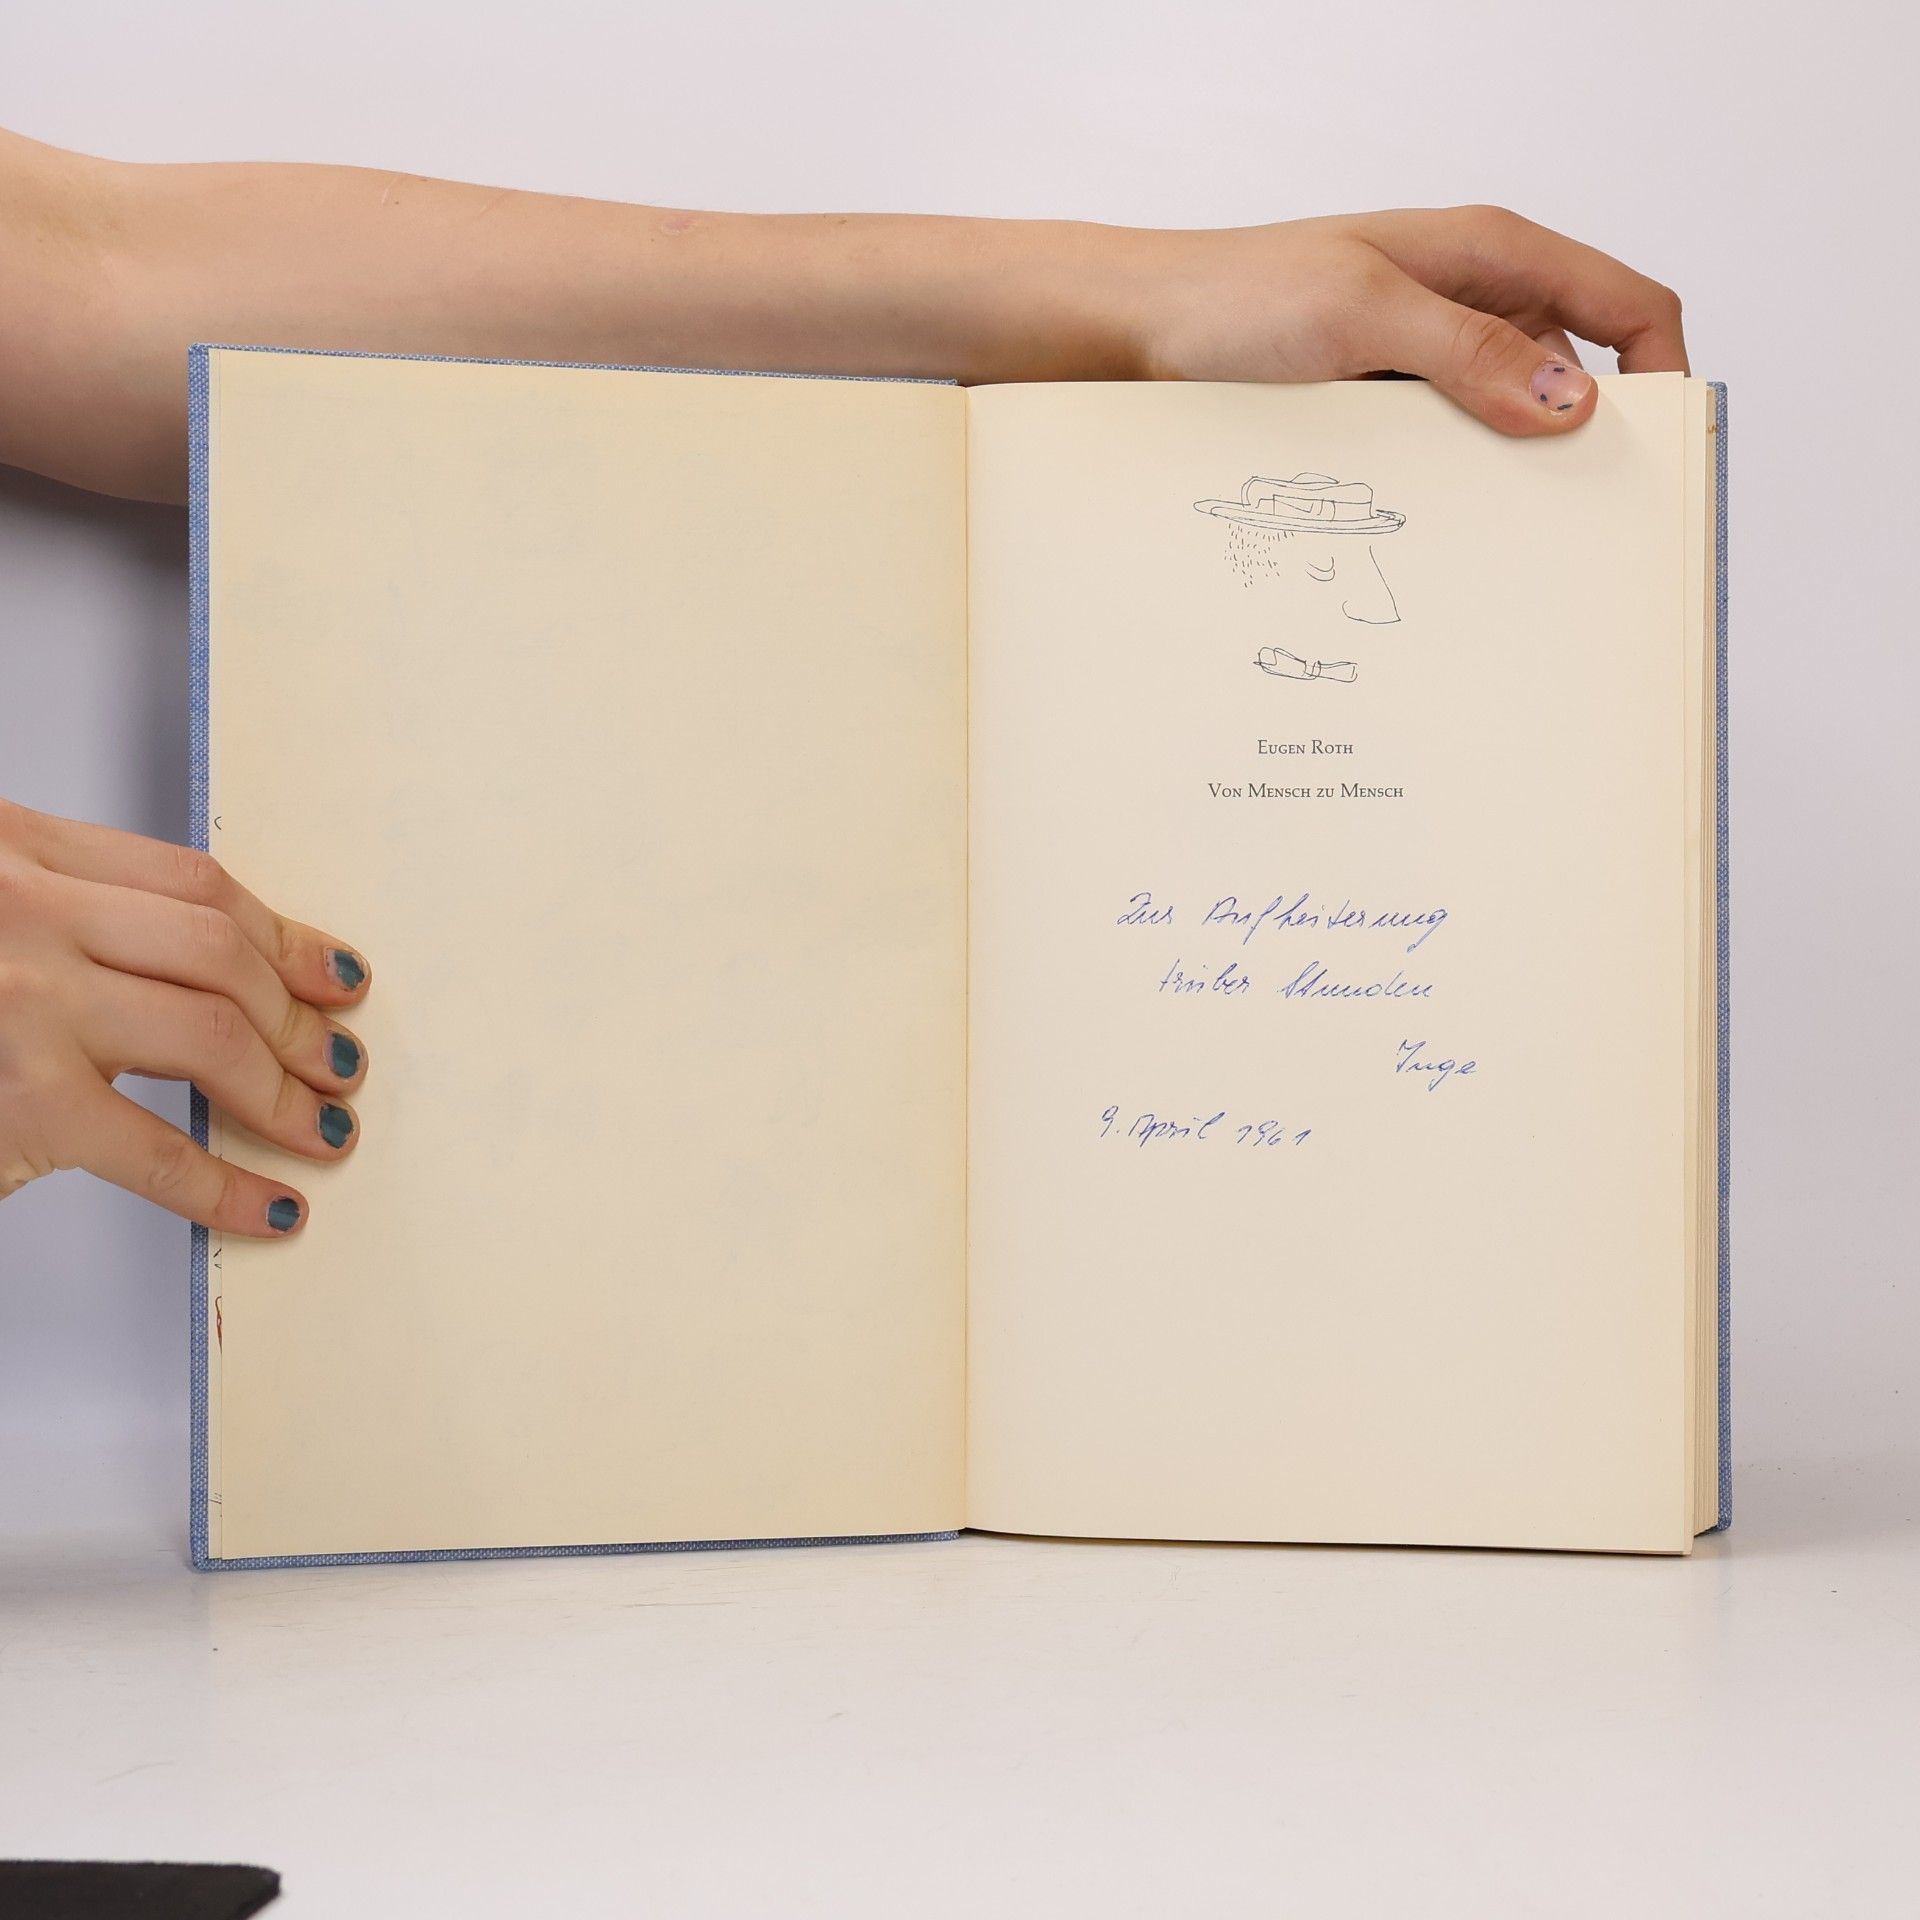 Eugen Roth
Von Mensch zu Mensch
Zur Aufheiterung
trüber Stunden
Inge
9. April 1961